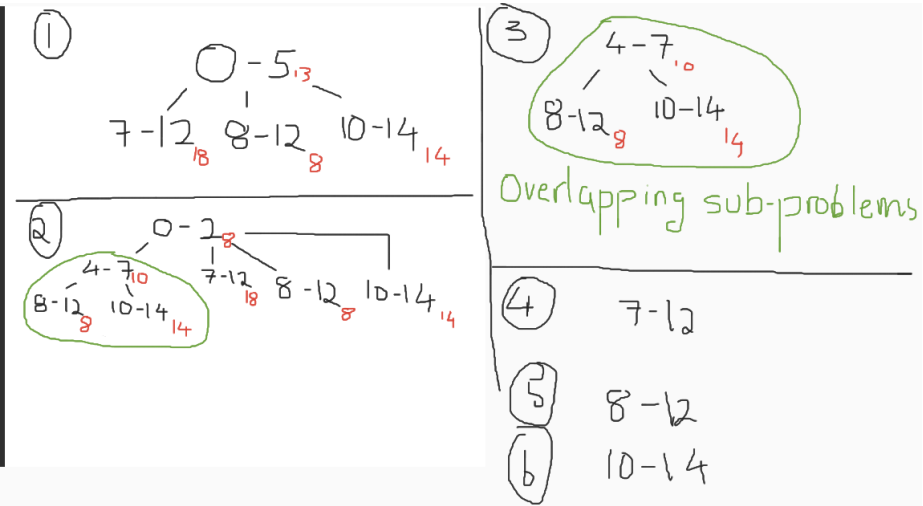 1
0-5 13
7-12 18 8-12 8 10-14 14
2
0-2 8
4-7 10 7-12 18 8-12 8 10-14 14
8-12 8 10-14 14
3
4-7 10
8-12 8 10-14 14
Overlapping sub-problems
4 7-12
5 8-12
6 10-14